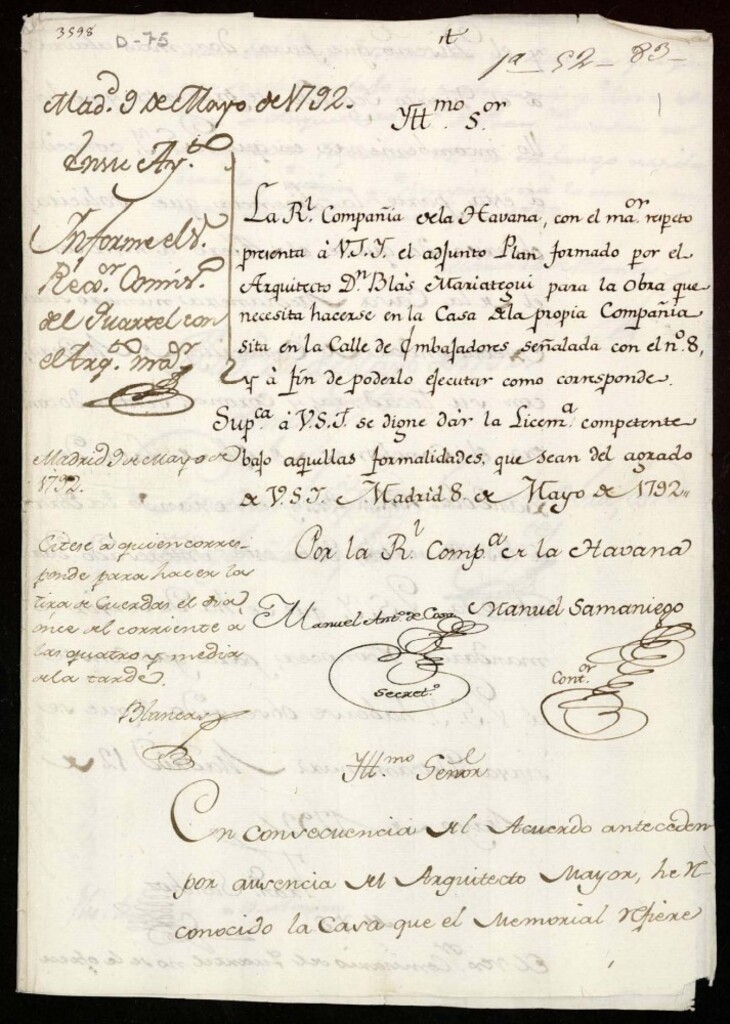 3598
D-75
1ª 52- 83-
†
Mad.ᵈ 9 de Mayo de 1792.
En su Ay.ᵗᵒ
Informe el S.ʳ
Rexᵒʳ. Comis.º
del Quartel con
el Arq.ᵗᵒ mᵃʸʳ
Yll.ᵐᵒ S.ᵒʳ
La R.ˡ Compañia de la Havana, con el maᵒʳ. respeto
presenta à V.S.I. el adjunto Plan formado por el
Arquitecto D.ⁿ Blàs Mariategui para la Obra que
necesita hacerse en la Casa de la propia Compañia
sita en la Calle de Embajadores señalada con el nº. 8,
y à fin de poderlo ejecutar como corresponde.
Sup.ᶜᵃ à V.S.I. se digne dàr la Licem.ᵃ competente
bajo aquellas formalidades, que sean del agrado
de V.S.I. Madrid 8. de Mayo de 1792.,
Por la R.ˡ Comp.ᵃ de la Havana
Manuel Antº. de Casa
Secretº.
Manuel Samaniego
Cont.ᵒʳ
Madrid 9 de Mayo de
1792.
Citese à quien corres-
ponde para hacer la
tira de Cuerdas el dia
once del corriente à
las quatro y media
de la tarde.
Blancas
Yll.ᵐᵒ Señor
En consecuencia del Acuerdo anteceden
por ausencia del Arquitecto Mayor, he re-
conocido la Casa que el Memorial refiere